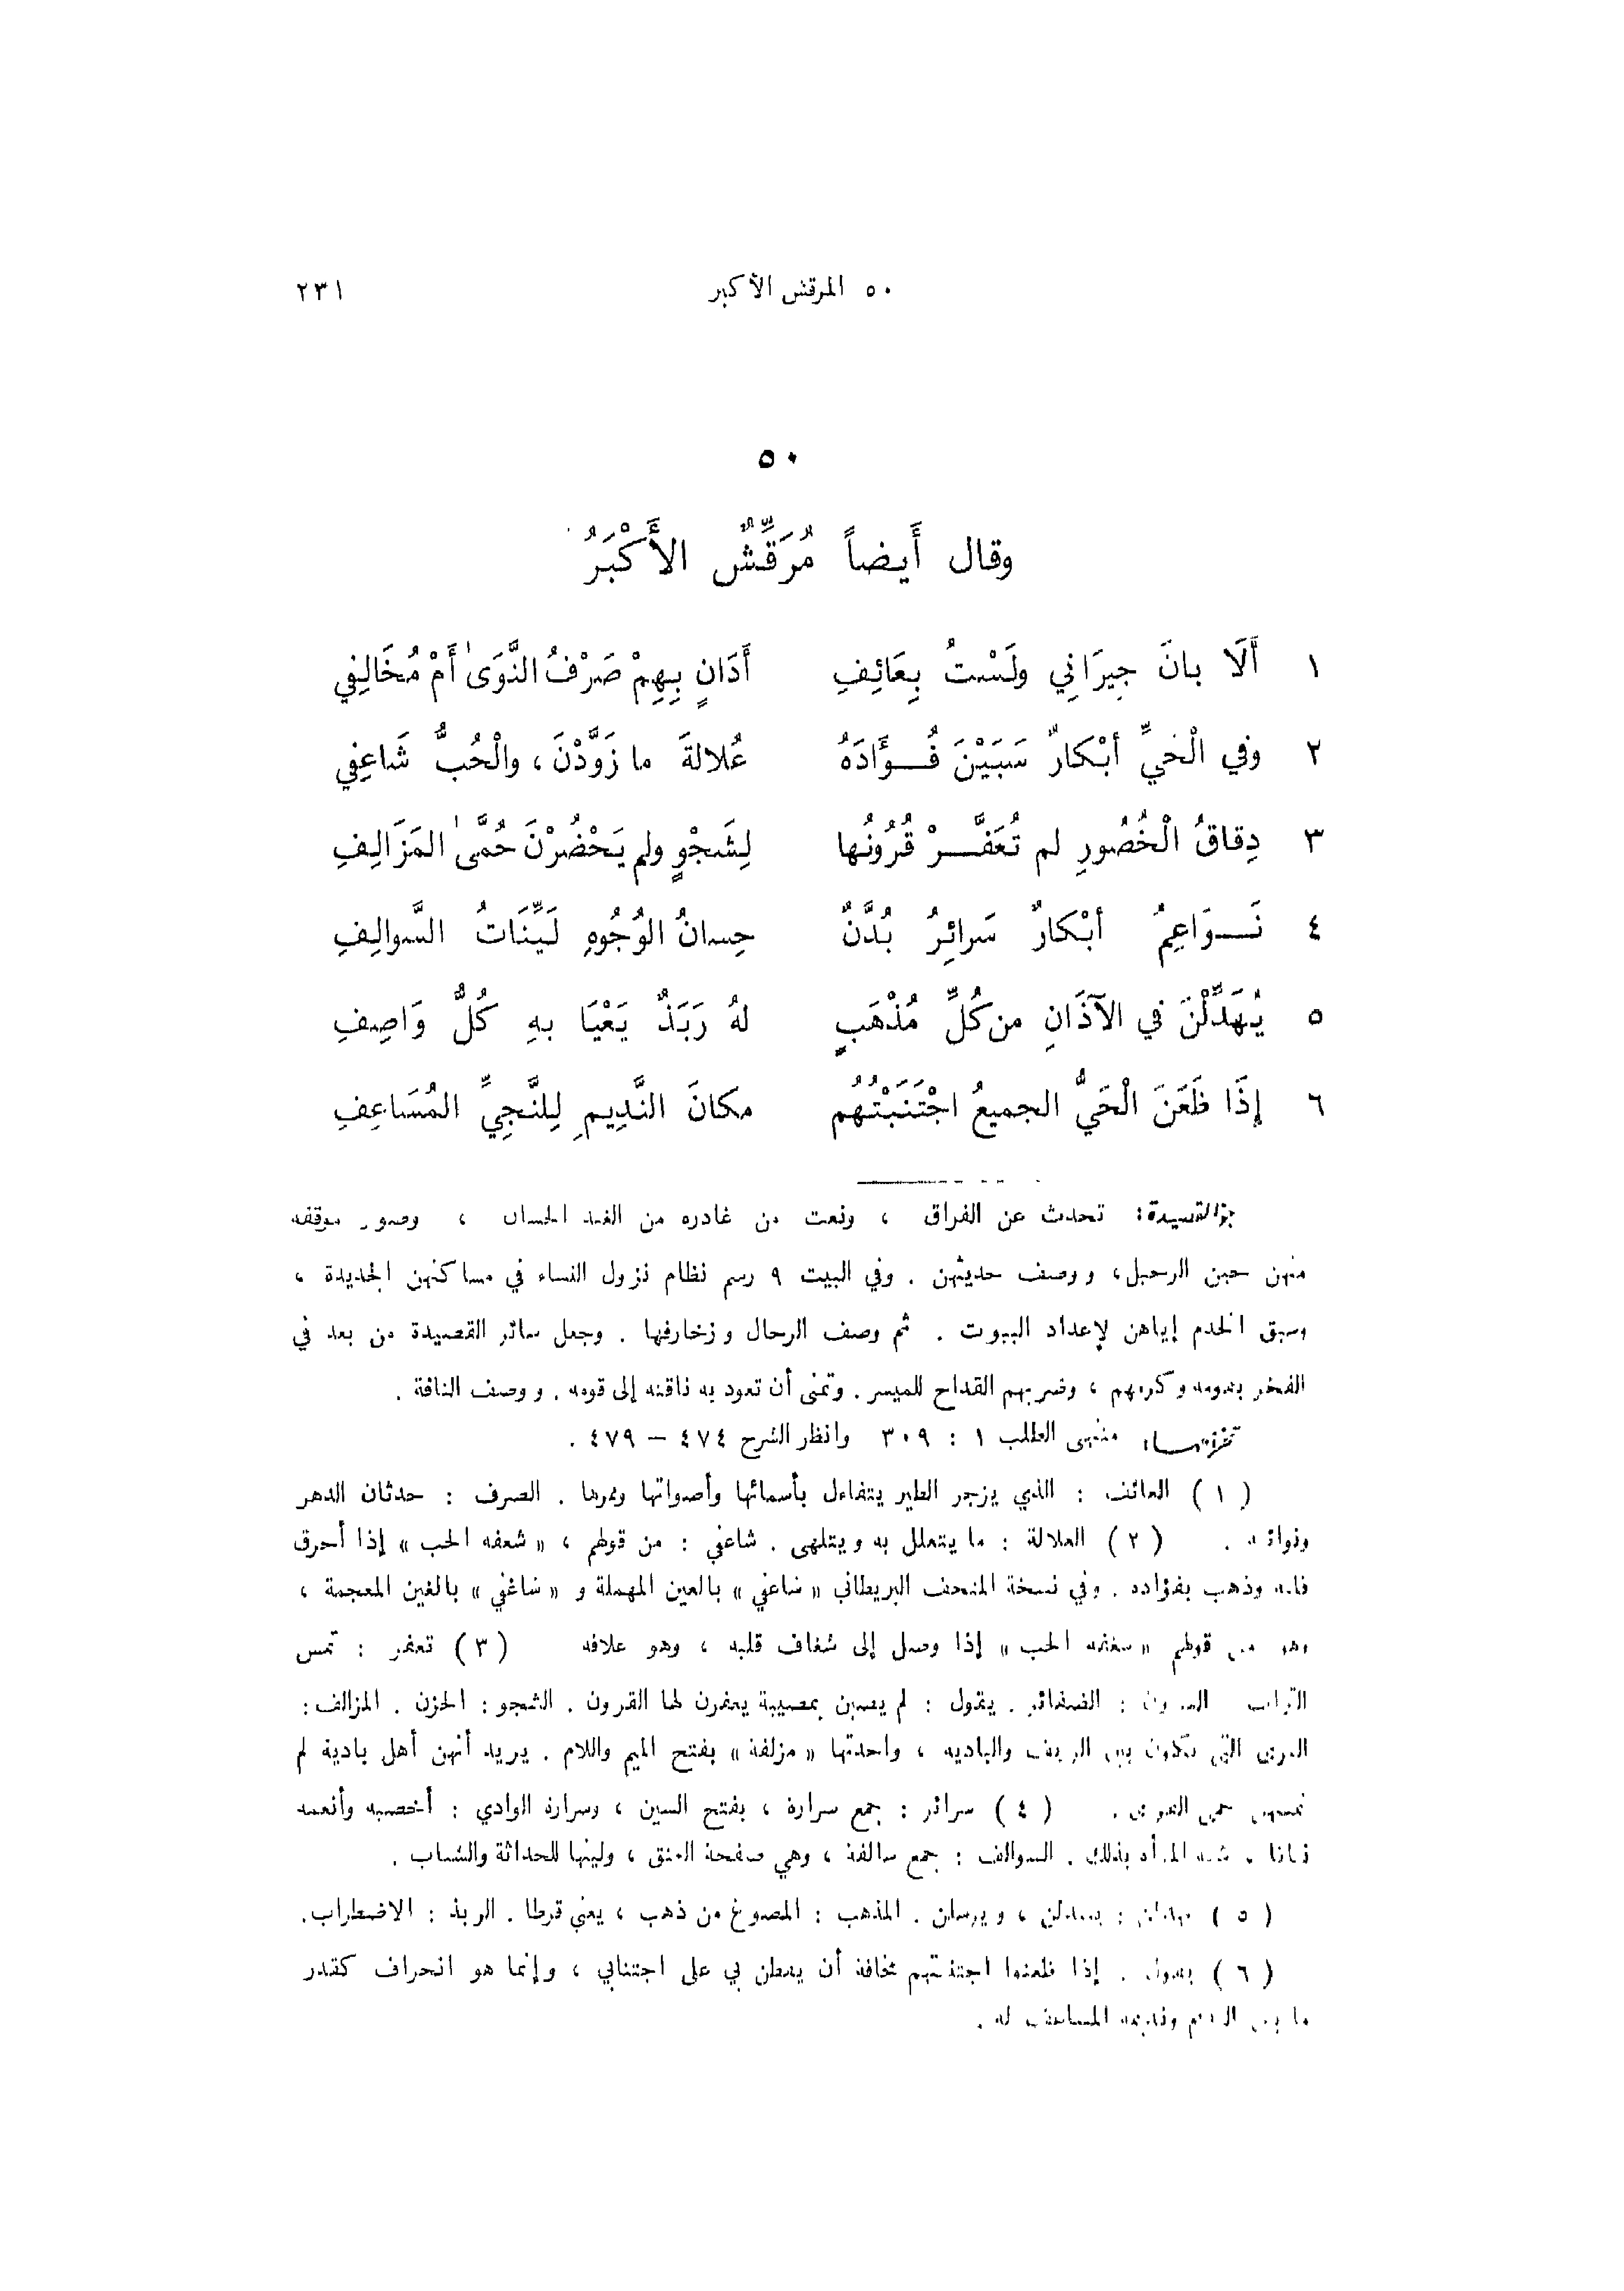 ٥٠ المرقش الأكبر ٢٣١
٥٠
وقال أَيضاً مُرَقِّشٌ الأَكْبَرُ
١ أَلَا بانَ جِيرَانِي ولَسْتُ بِعَائِفِ أَدَانٍ بِهِمْ صَرْفُ النَّوَىٰ أَمْ مُخَالِفِي
٢ وفي الْحَيِّ أَبْكارٌ سَبَيْنَ فُؤَادَهُ عُلالةَ ما زَوَّدْنَ ، والْحُبُّ شَاعِفِي
٣ دِقاقُ الْخُصُورِ لم تُعَفَّرْ قُرُونُها لِشَجْوٍ ولم يَحْضُرْنَ حُمَّىٰ المَزَالِفِ
٤ نَوَاعِمُ أَبْكارٌ سَرائِرُ بُدَّنٌ حِسانُ الوُجُوهِ لَيِّنَاتُ السَّوالِفِ
٥ يُهَدِّلْنَ في الآذَانِ من كُلِّ مُذْهَبٍ لهُ رَبَذٌ يَعْيَا بهِ كُلُّ وَاصِفِ
٦ إِذَا ظَعَنَ الْحَيُّ الجميعُ اجْتَنَبْتُهُم مكانَ النَّدِيمِ لِلنَّجِيِّ المُسَاعِفِ
جو القصيدة: تحدث عن الفراق ، ونعت من غادره من الغيد الحسان ، وصور موقفه
منهن حين الرحيل ، ووصف حديثهن . وفي البيت ٩ رسم نظام نزول النساء في مساكنهن الجديدة ،
وسبق الخدم إياهن لإعداد البيوت . ثم وصف الرحال وزخارفها . وجعل سائر القصيدة من بعد في
الفخر بقومه وكرمهم ، وضربهم القداح للميسر . وتمنى أن تعود به ناقته إلى قومه . ووصف الناقة .
تخريجها: منتهى الطلب ١ : ٣٠٩ وانظر الشرح ٤٧٤ – ٤٧٩ .
( ١ ) العائف : الذي يزجر الطير يتفاءل بأسمائها وأصواتها وممرها . الصرف : حدثان الدهر
ونوائبه . ( ٢ ) العلالة : ما يتعلل به ويتلهى . شاعفي : من قولهم ، « شعفه الحب » إذا أحرق
قلبه وذهب بفؤاده . وفي نسخة المتحف البريطاني « شاعفي » بالعين المهملة و « شاغفي » بالغين المعجمة ،
وهو من قولهم « شغفه الحب » إذا وصل إلى شغاف قلبه ، وهو غلافه ( ٣ ) تعفر : تمس
التراب القرون : الضفائر . يقول : لم يصبن بمصيبة يعفرن لها القرون . الشجو : الحزن . المزالف :
القرى التي تكون بين الريف والبادية ، واحدتها « مزلفة » بفتح الميم واللام . يريد أنهن أهل بادية لم
تصبهن حمى القرى . ( ٤ ) سرائر : جمع سرارة ، بفتح السين ، وسرارة الوادي : أخصبه وأنعمه
نباتا ، شبه المرأة بذلك . السوالف : جمع سالفة ، وهي صفحة العنق ، ولينها للحداثة والشباب .
( ٥ ) يهدلن : يسدلن ، ويرسلن . المذهب : المصوغ من ذهب ، يعني قرطا . الربذ : الاضطراب.
( ٦ ) يقول . إذا ظعنوا اجتنبتهم مخافة أن يفطن بي على اجتنابي ، وإنما هو انحراف كقدر
ما بين النديم ونديمه المساعف له .